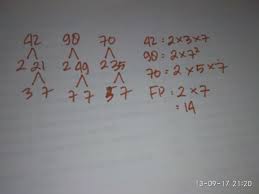 42 98 70
2 21 2 49 2 35
3 7 7 7 5 7
42 = 2 x 3 x 7
98 = 2 x 7²
70 = 2 x 5 x 7
FP = 2 x 7
= 14
13-09-17 21:20